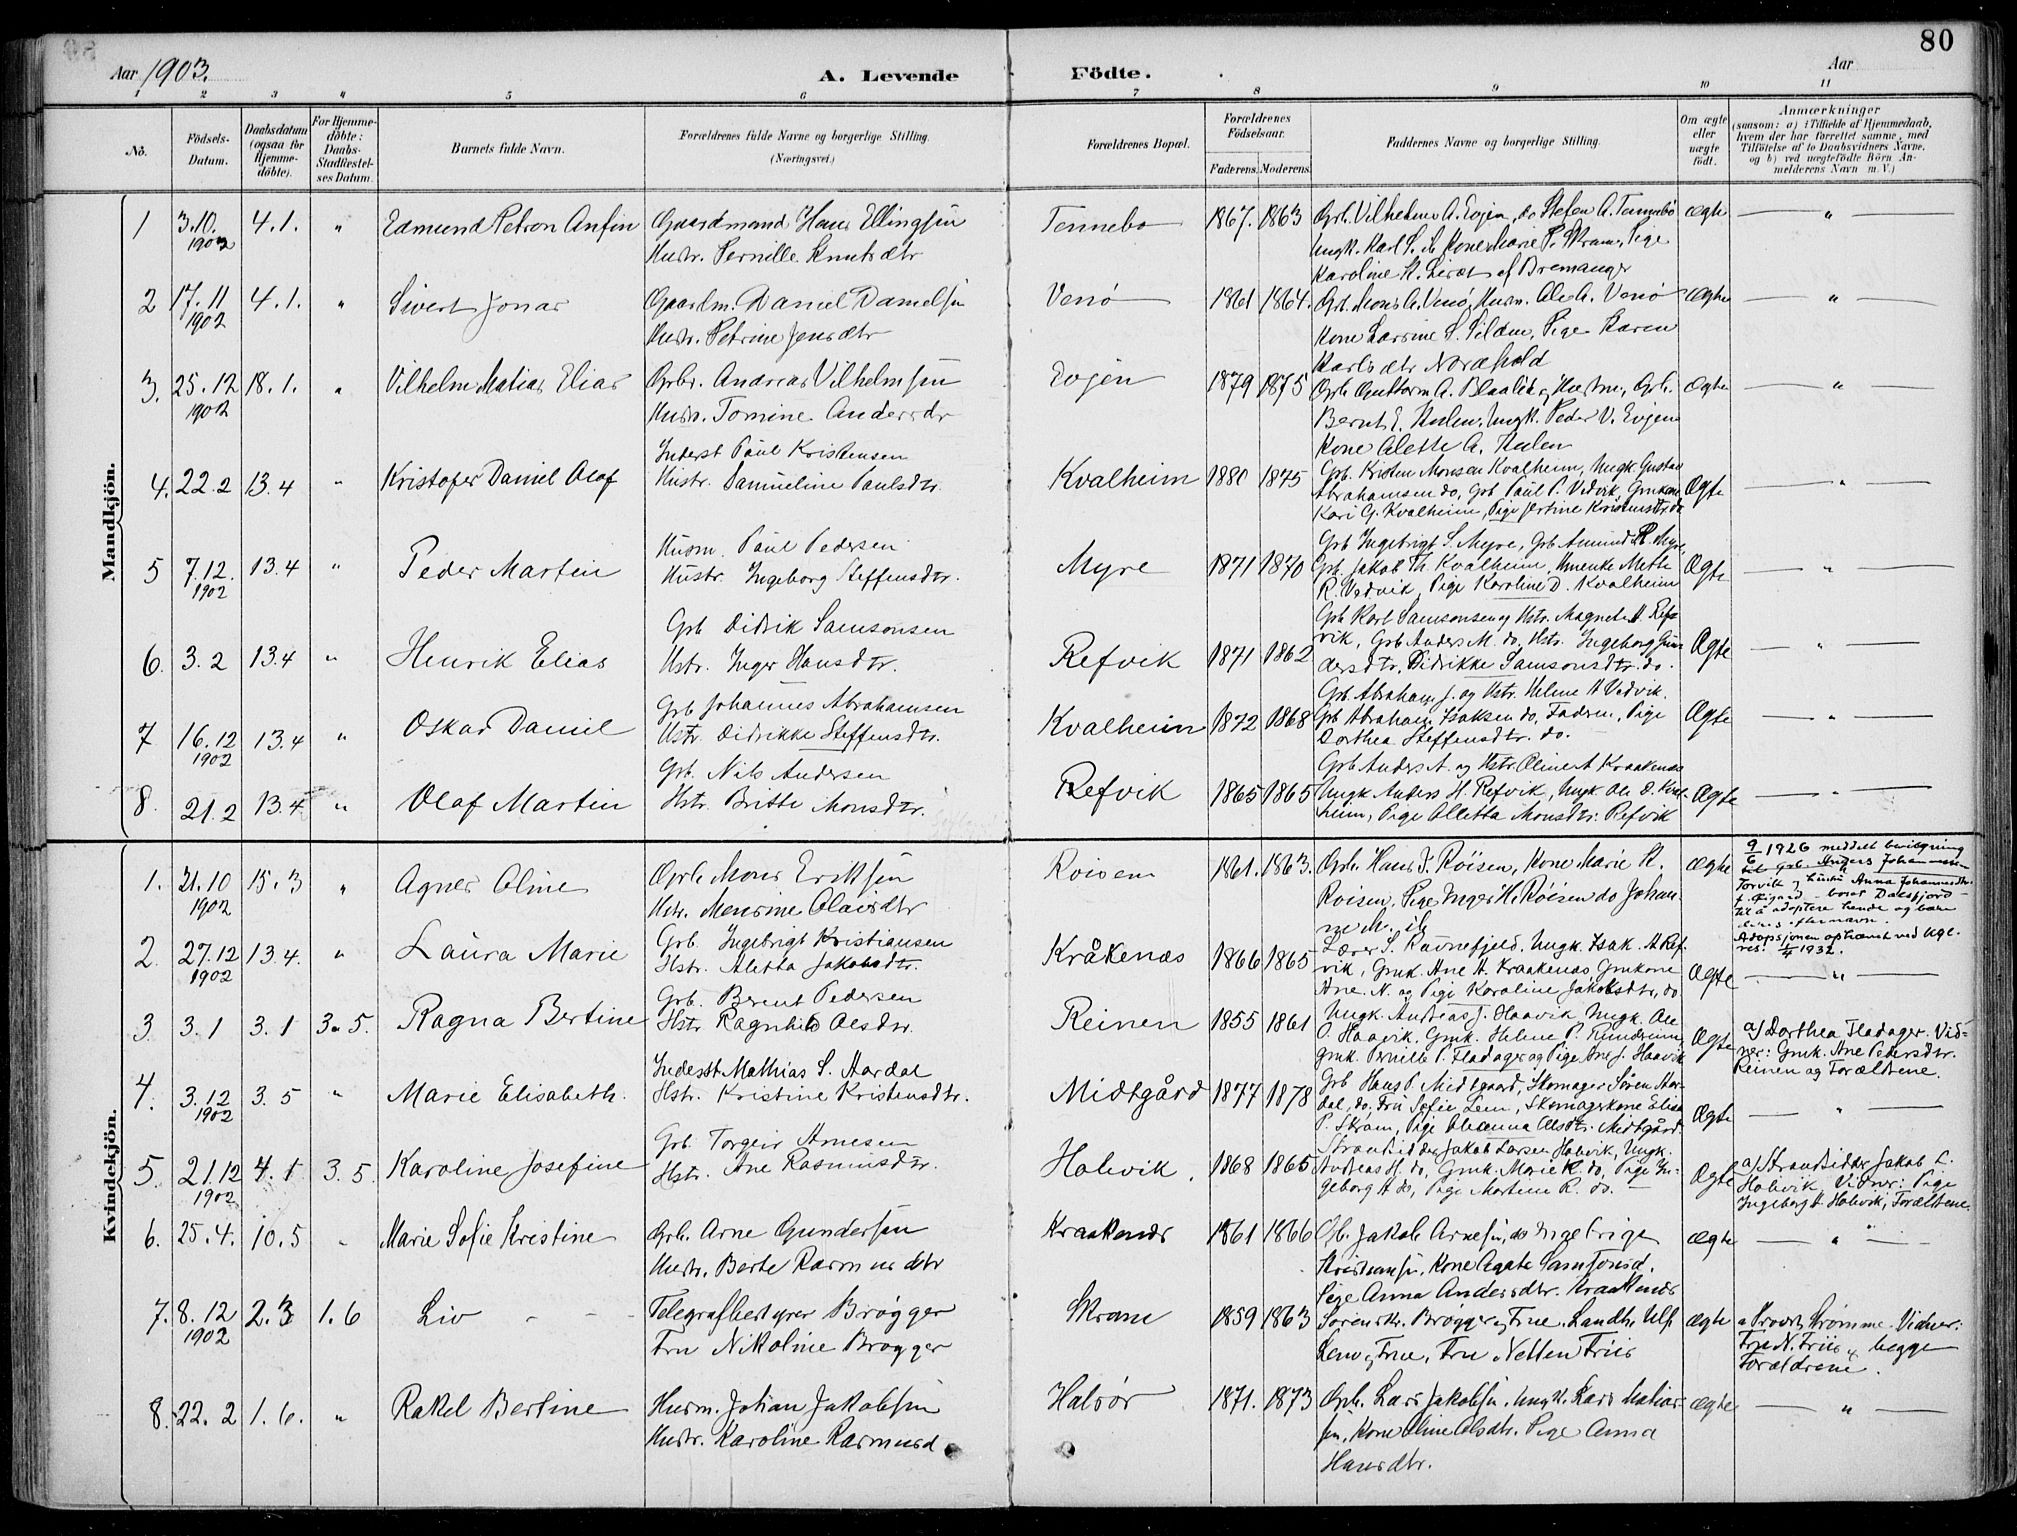 80
Aar 1903.
A. Levende Födte.
Aar
1 2 3 4 5 6 7 8 9 10 11
No.
Födsels-Datum.
Daabsdatum (ogsaa for Hjemme-döbte).
For Hjemme-döbte: Daabs-Stadfæstel-ses Datum.
Barnets fulde Navn.
Forældrenes fulde Navne og borgerlige Stilling. (Næringsvei.)
Forældrenes Bopæl.
Forældrenes Födselsaar.
Faderens. Moderens.
Faddernes Navne og borgerlige Stilling.
Om ægte eller uægte födt.
Anmærkninger (saasom: a) i Tilfælde af Hjemmedaab, hvem der har forrettet samme, med Tilföielse af to Daabsvidners Navne, og b) ved uægtefödte Börn An-melderens Navn m. V.)
Mandkjön.
1 3.10. 1902 4.1. " Edmund Petron Anfin
Gaardmand Hans Ellingsen
Hustr. Pernille Knutsdtr
Tennebø 1867. 1863
Grb. Vilhelm A. Evjen, do Stefen A. Tennebø
Ungk. Karl S. ib Kone Marie P. Skram, Pige
Karoline K. af Bremanger
Ægte "
2 17.11 1902 4.1. " Sivert Jonas
Gaardm. Daniel Danielsen
Hustr. Petrine Jensdtr
Venø 1861 1864.
Grb. Mons A. Venø, Husm. Ole A. Venø
Kone Larsine S. Silden, Pige Karen
Karlsdtr
Ægte "
3. 25.12 1902 18.1. " Vilhelm Matias Elias
Grbr. Andreas Vilhelmsen
Hustr. Tomine Andersdr
Evjen 1879 1875
Grb. Guttorm A. og Hustru, Grb.
Bernt E. Hulen, Ungk. Peder V. Evjen
Kone Alette A. Hulen
Ægte "
4. 22.2 13.4 " Kristofer Daniel Olaf
Inderst Paul Kristensen
Hustr. Samueline Paulsdtr.
Kvalheim 1880 1875
Grb. Kristen Monsen Kvalheim, Ungk. Gustav
Abrahamsen do, Grb Paul P. Vedvik, Gmkone
Kari G. Kvalheim, Pige Kristensdtr do
Ægte "
5 7.12. 1902 13.4 " Peder Martin
Husm. Paul Pedersen
Hustr. Ingeborg Steffensdtr.
Myre 1871 1870
Grb Ingebrigt S. Myre, Grb Amund R. Myre,
Grb. Jakob Th. Kvalheim, Umenke Mette
R. Vedvik, Pige Karoline D. Kvalheim
Ægte "
6. 3.2 13.4 " Henrik Elias
Grb Didrik Samsonsen
Hstr. Inger Hansdtr.
Refvik 1871 1862
Grb Karl Samsonsen og Hstr. Magnete H. Ref-
vik, Grb Anders M. do, Hstr. Ingeborg Gun-
dersdtr, Didrikke Samsonsdtr. do.
Ægte "
7 16.12 1902 13.4 " Oskar Daniel
Grb Johannes Abrahamsen
Hstr. Didrikke Steffensdtr.
Kvalheim 1872 1868
Grb. Abraham J. og Hstr. Helene H Vedvik.
Grb Abraham Isaksen do, Fadren, Pige
Dorthea Steffensdtr. do.
Ægte "
8. 21.2 13.4 " Olaf Martin
Grb. Nils Andersen
Hstr. Britte Monsdtr.
Refvik 1865 1865
Grb Anders A. og Hstr. Oline A Kraakenes
Ungk Anders H. Refvik, Ungk Ole D. Kval-
heim, Pige Olletta Monsdtr. Refvik
Ægte "
Kvindekjön.
1. 31.10 1902 15.3 " Agnes Oline
Grb. Mons Eriksen
Hstr. Monsine Olaisdtr
Røisen 1861. 1863.
Grb. Hans J. Røisen, Kone Marie K.
Røisen, Pige Inger H. Røisen do Johan-
ne M. ib.
Ægte
9/6 1926 meddelt bevilgning
til grb. Anders Johannessen
Torvik og hustru Anna Johannesdtr.
f. Øigard – boras Dalsfjord –
til å adoptere hende og bære
deres efternavn.
Adopsjonen ophævet ved kgl.
res. 1/4 1932.
2. 27.12 1902 13.4. " Laura Marie
Grb. Ingebrigt Kristiansen
Hstr. Aletta Jakobsdtr.
Kråkenæs 1866 1865
Lærer S. Ravnefjeld, Ungk. Isak. A Ref-
vik, Gmk. Ane H. Kraakenæs Gmkone
Ane. N. og Pige Karoline Jakobsdtr, do
Ægte "
3 3.1 3.1 3.5. Ragna Bertine
Grb. Berent Pedersen
Hstr Ragnhild Olsdtr.
Reinen 1855 1861
Ungk. Andreas J. Haavik, Ungk. Ole
P. Haavik, Gmk. Helene P. Runderein,
gmk. Pernille P. Fladager og Pige Ane J. Haavik
Ægte
a) Dorthea Fladager. Vid-
ner: Gmk. Ane Pedersdtr.
Reinen og Forældrene.
4. 3.12 1902 3.5 " Marie Elisabeth.
Inderst Mathias S. Aardal
Hstr. Kristine Kristensdtr.
Midtgård 1877 1878
Grb Hans P. Midtgaard, Skomager Søren Aar-
dal, do, Fru Sofie Lem, Skomagerkone Elisa
P. Skram, Pige Olsdtr. Midtgård.
Ægte "
5. 21.12 1902 4.1 3.5. Karoline Josefine
Grb. Torgeir Arnesen
Hstr. Ane Rasmusdtr.
Holevik. 1868 1865
Strandsidder Jakob Larsen Holevik, Ungk.
Andreas H. do, Gmk. Marie K. do, Pige In-
geborg H do, Pige Martine R. do.
Ægte
a) Strandsidder Jakob L.
Holevik. Vidner: Pige
Ingeborg H Holevik, Forældrene.
6. 25.4. 10.5 " Marie Sofie Kristine
Grb. Arne Gundersen
Hustr. Berte Rasmusdtr
Kraakenæs 1861 1866
Grb. Jakob Arnesen, do Ingebrigt
Kristiansen, Kone Agate Samsonsd.
Pige Anna Andersdtr. Kraakenæs
Ægte "
7. 8.12 1902 2.3 1.6 Liv - -
Telegrafbestyrer Brøgger
Fru Nikoline Brøgger
Skram 1859 1863
Sorenskr. Brøgger og Frue. Landh. Ulf
Lem og Frue, Fru Netten Friis
Ægte
a Provst Strømme. Vidner:
Fru N. Friis & begge
Forældrene.
8. 22.2 1.6. " Rakel Bertine
Husm. Johan Jakobsen
Hustr. Karoline Rasmusd
Halsør 1871. 1873
Grb. Lars Jakobsen, Ungk. Lars Matias-
sen, Kone Oline Olsdtr. Pige Anna
Hansdtr.
Ægte "